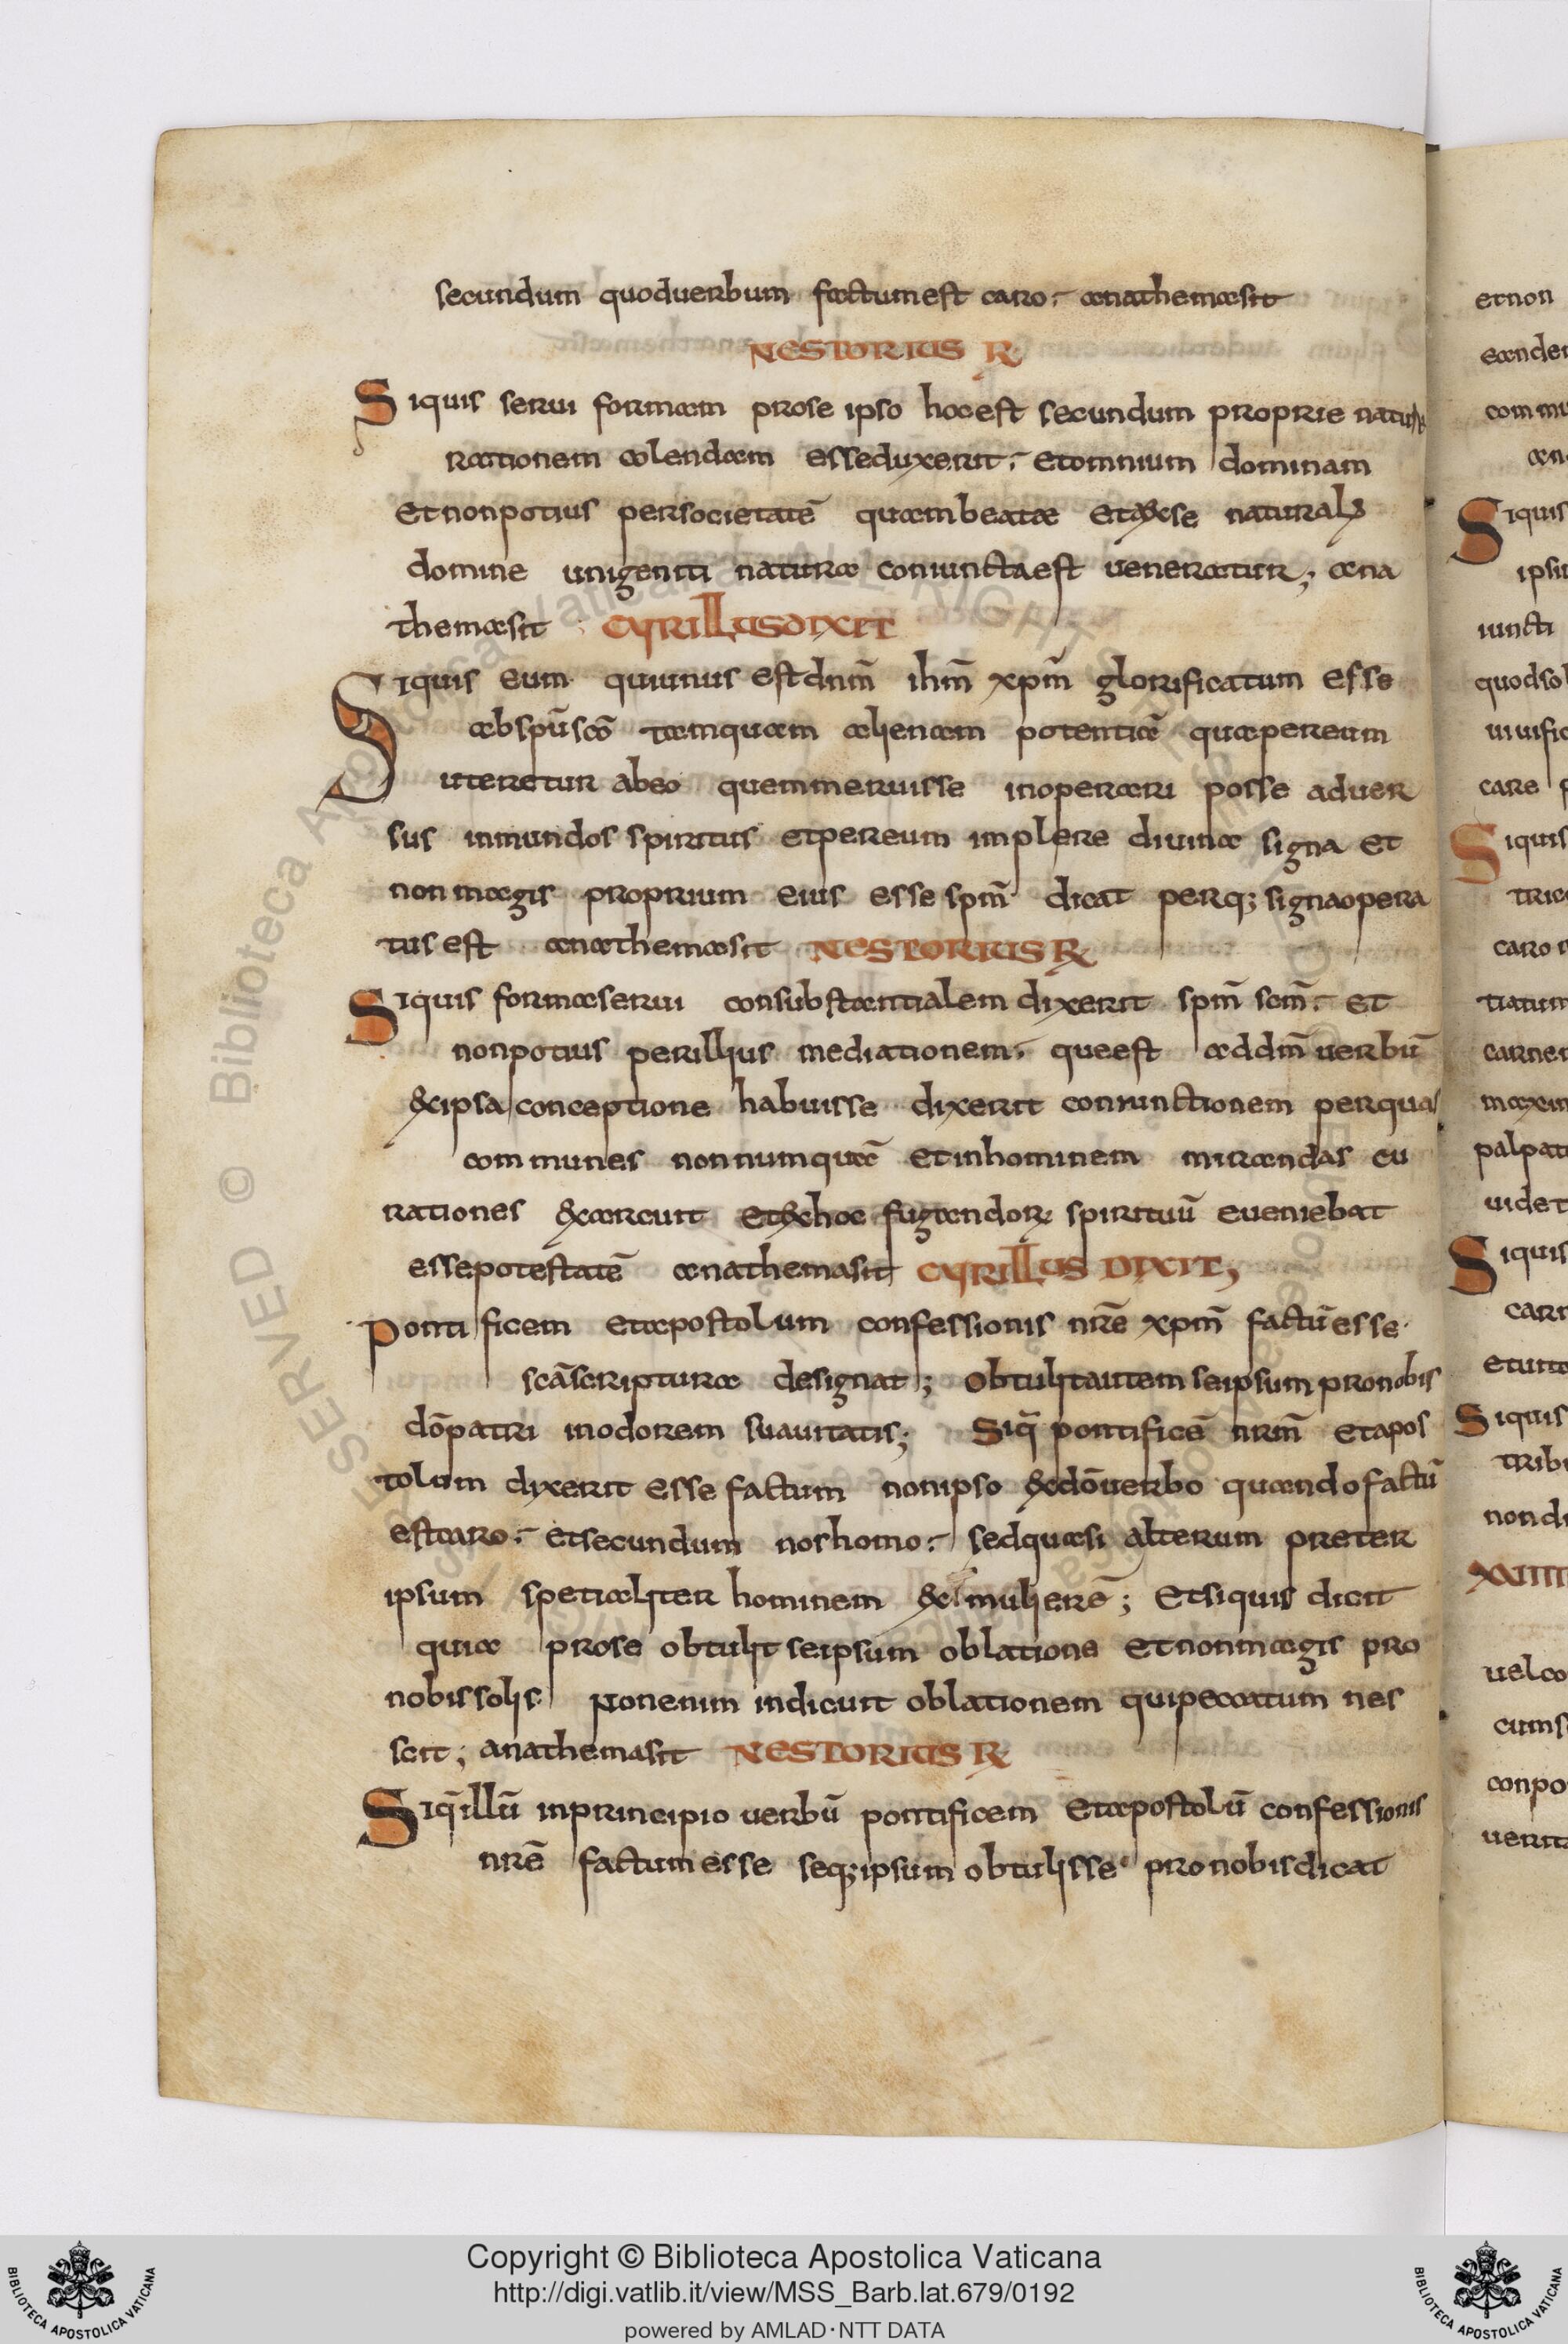 secundum quoduerbum factumest caro. anathemasit
NESTORIUS R
Siquis serui formam prose ipso hocest secundum proprie
rationem colendam esseduxerit. etomnium dominam
etnonpotius persocietatē quambeatae etexse
domine unigeniti natura coniunctaest ueneratur; ana
themasit CYRILLUSDIXIT
Siquis eum quiunus estdnm̄ ihm̄ xpm̄ glorificatum esse
abspūscō tamquam alienam potentiā quapereum
uteretur abeo quemmeruisse inoperari posse aduer
sus inmundos spiritus etpereum implere diuina signa et
non magis proprium eius esse spm̄ dicat perq; signaopera
tus est anathemasit NESTORIUS R
Siquis formaserui consubstantialem dixerit spm̄ scm̄. et
nonpotius perillius mediationem. queest addm̄ uerbū
exipsa conceptione habuisse dixerit coniunctionem perqua
communes nonnumquā etinhominem mirandas cu
rationes exarcuit etexhoc fugandor spirituū eueniebat
essepotestatē anathemasit CYRILLUS DIXIT,
Pontificem etapostolum confessionis nrē xpm̄ factū esse
scāscriptura designat; Obtulitautem seipsum pronobis
dō patri inodorem suauitatis; Siq̄ pontificē nrm̄ etapos
tolum dixerit esse factum nonipso exdōuerbo quandofactū
estcaro. etsecundum noshomo. sedquasi alterum preter
ipsum spetialiter hominem ex muliere; Etsiquis dicit
quia prose obtulit seipsum oblatione etnonmagis pro
nobissolis Nonenim indicuit oblationem quipeccatum nes
scit; anathemasit NESTORIUS R
Siq̄illū inprincipio uerbū pontificem etapostolū confessionis
nrē factum esse seq;ipsum obtulisse pronobisdicat
etnon
iuncti
care
palpat
uidet
Siquis
Siquis
Copyright © Biblioteca Apostolica Vaticana
http://digi.vatlib.it/view/MSS_Barb.lat.679/0192
powered by AMLAD·NTT DATA
BIBLIOTECA APOSTOLICA VATICANA
BIBLIOTECA APOSTOLICA VATICANA